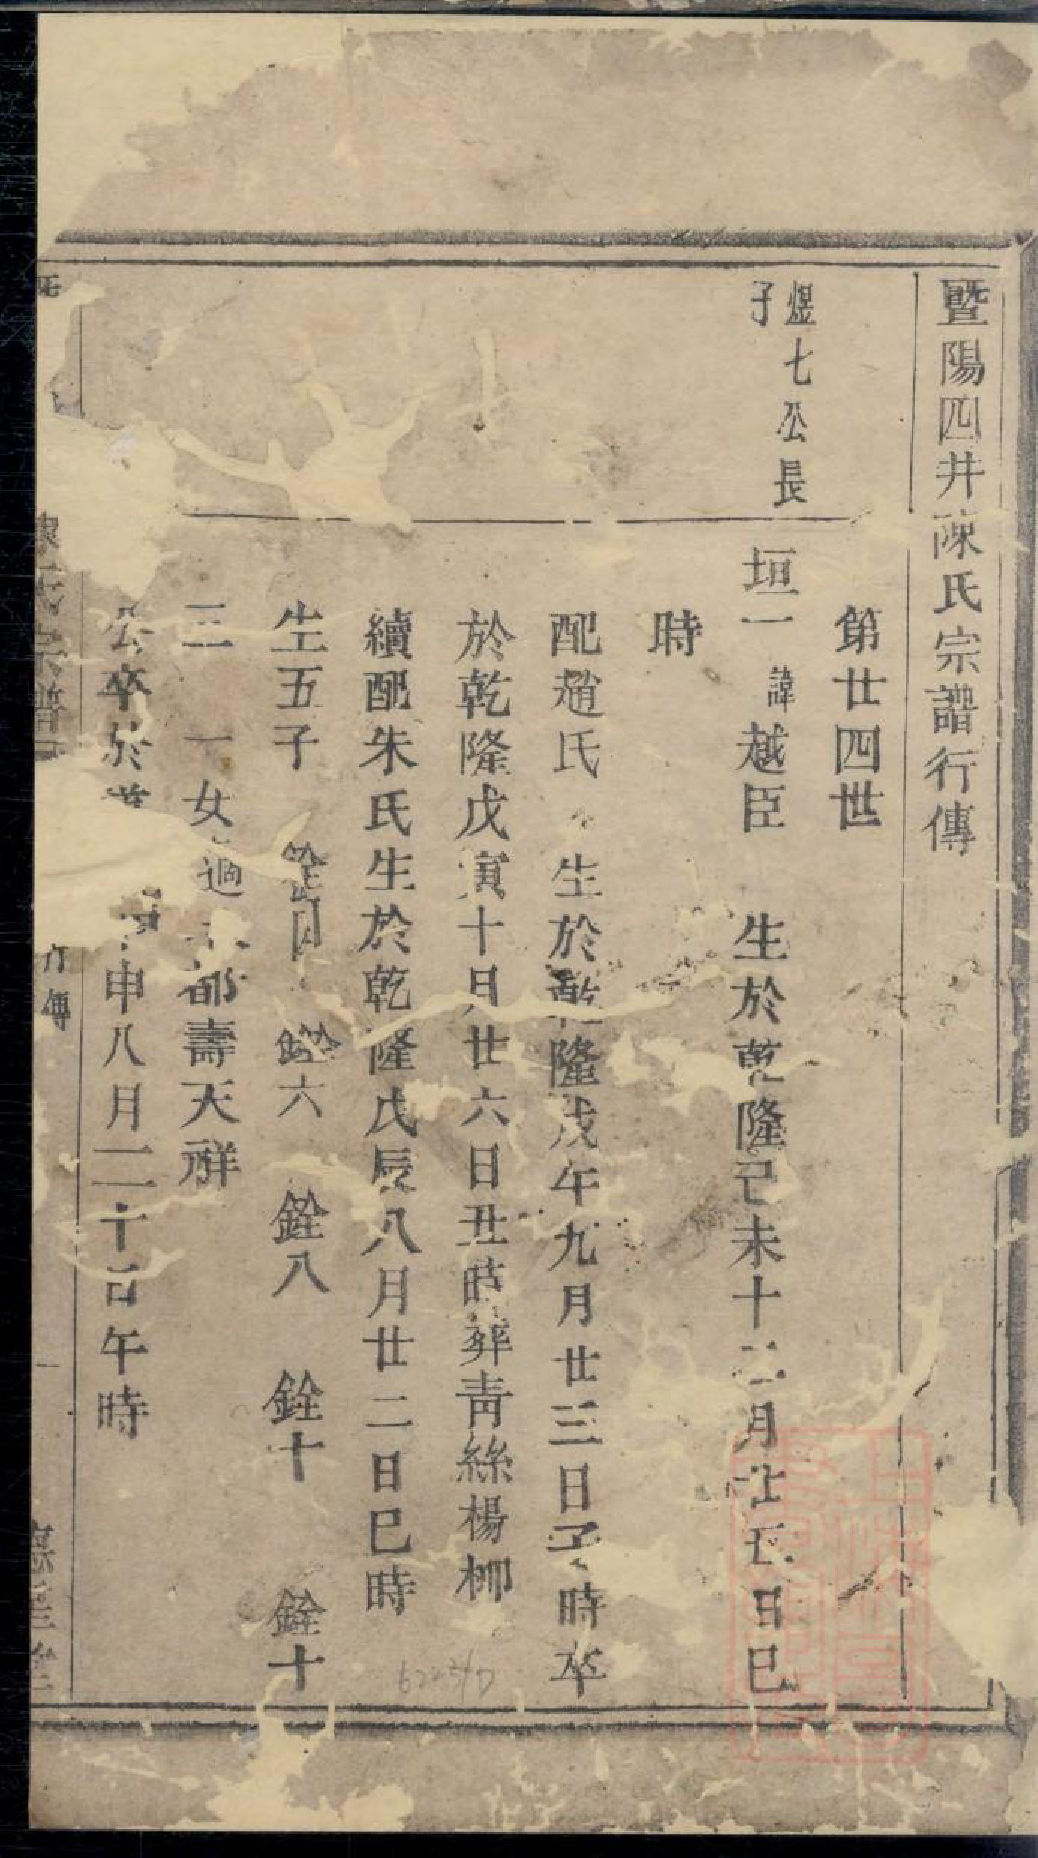 暨陽四井陳氏宗譜行傳
第廿四世
煜七公長
子
垣一 諱越臣 生於乾隆己未十二月廿五日巳
時
配趙氏 生於乾隆戊午九月廿三日子時卒
於乾隆戊寅十月廿六日丑時葬青絲楊柳
續配朱氏生於乾隆戊辰八月廿二日巳時
生五子 銓四 銓六 銓八 銓十 銓十
三 一女適 都壽天祥
公卒於 申八月二十日午時
陳氏宗譜
行傳
一